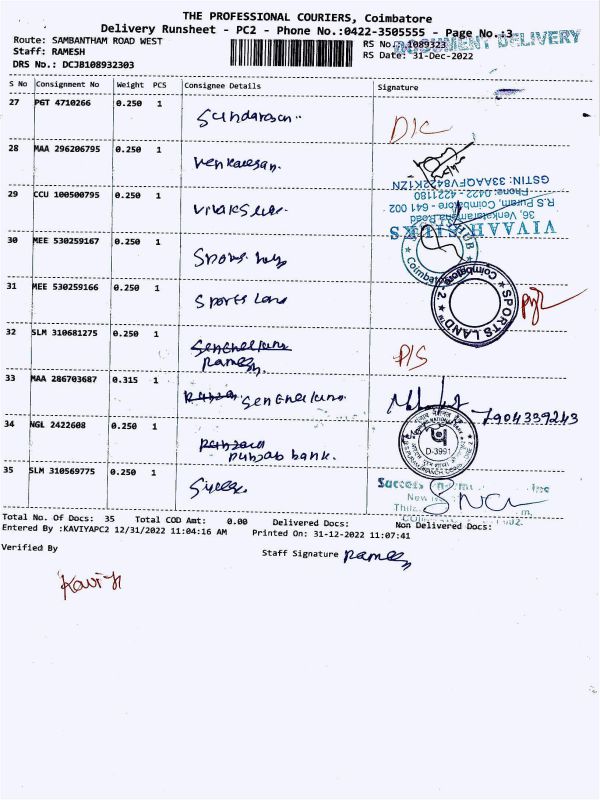 THE PROFESSIONAL COURIERS, Coimbatore
Delivery Runsheet - PC2 - Phone No.:0422-3505555 - Page No.:3
Route: SAMBANTHAM ROAD WEST
RS No.: 1089323
DOCUMENT DELIVERY
Staff: RAMESH
RS Date: 31-Dec-2022
DRS No.: DCJB108932303
S No Consignment No Weight PCS Consignee Details Signature
27 PGT 4710266 0.250 1 Sundaresan D/C
28 MAA 296206795 0.250 1 Venkatesan
29 CCU 100500795 0.250 1
VIVAAH SILKS
36, Venkataramana Road
R.S Puram, Coimbatore - 641 002
Phone: 0422 - 4221180
GSTIN: 33AAQFV8422K1ZN
30 MEE 530259167 0.250 1 Sports hub
HUB
Coimbatore
31 MEE 530259166 0.250 1 Sports Land
SPORTS LAND
Coimbatore-2
32 SLM 310681275 0.250 1
Ramesh
P/S
33 MAA 286703687 0.315 1 Senthelkumar
7904339243
34 NGL 2422608 0.250 1
punjab bank.
D-3991
35 SLM 310569775 0.250 1
Success
Total No. Of Docs: 35 Total COD Amt: 0.00 Delivered Docs: Non Delivered Docs:
Entered By :KAVIYAPC2 12/31/2022 11:04:16 AM Printed On: 31-12-2022 11:07:41
Verified By
Staff Signature Ramesh